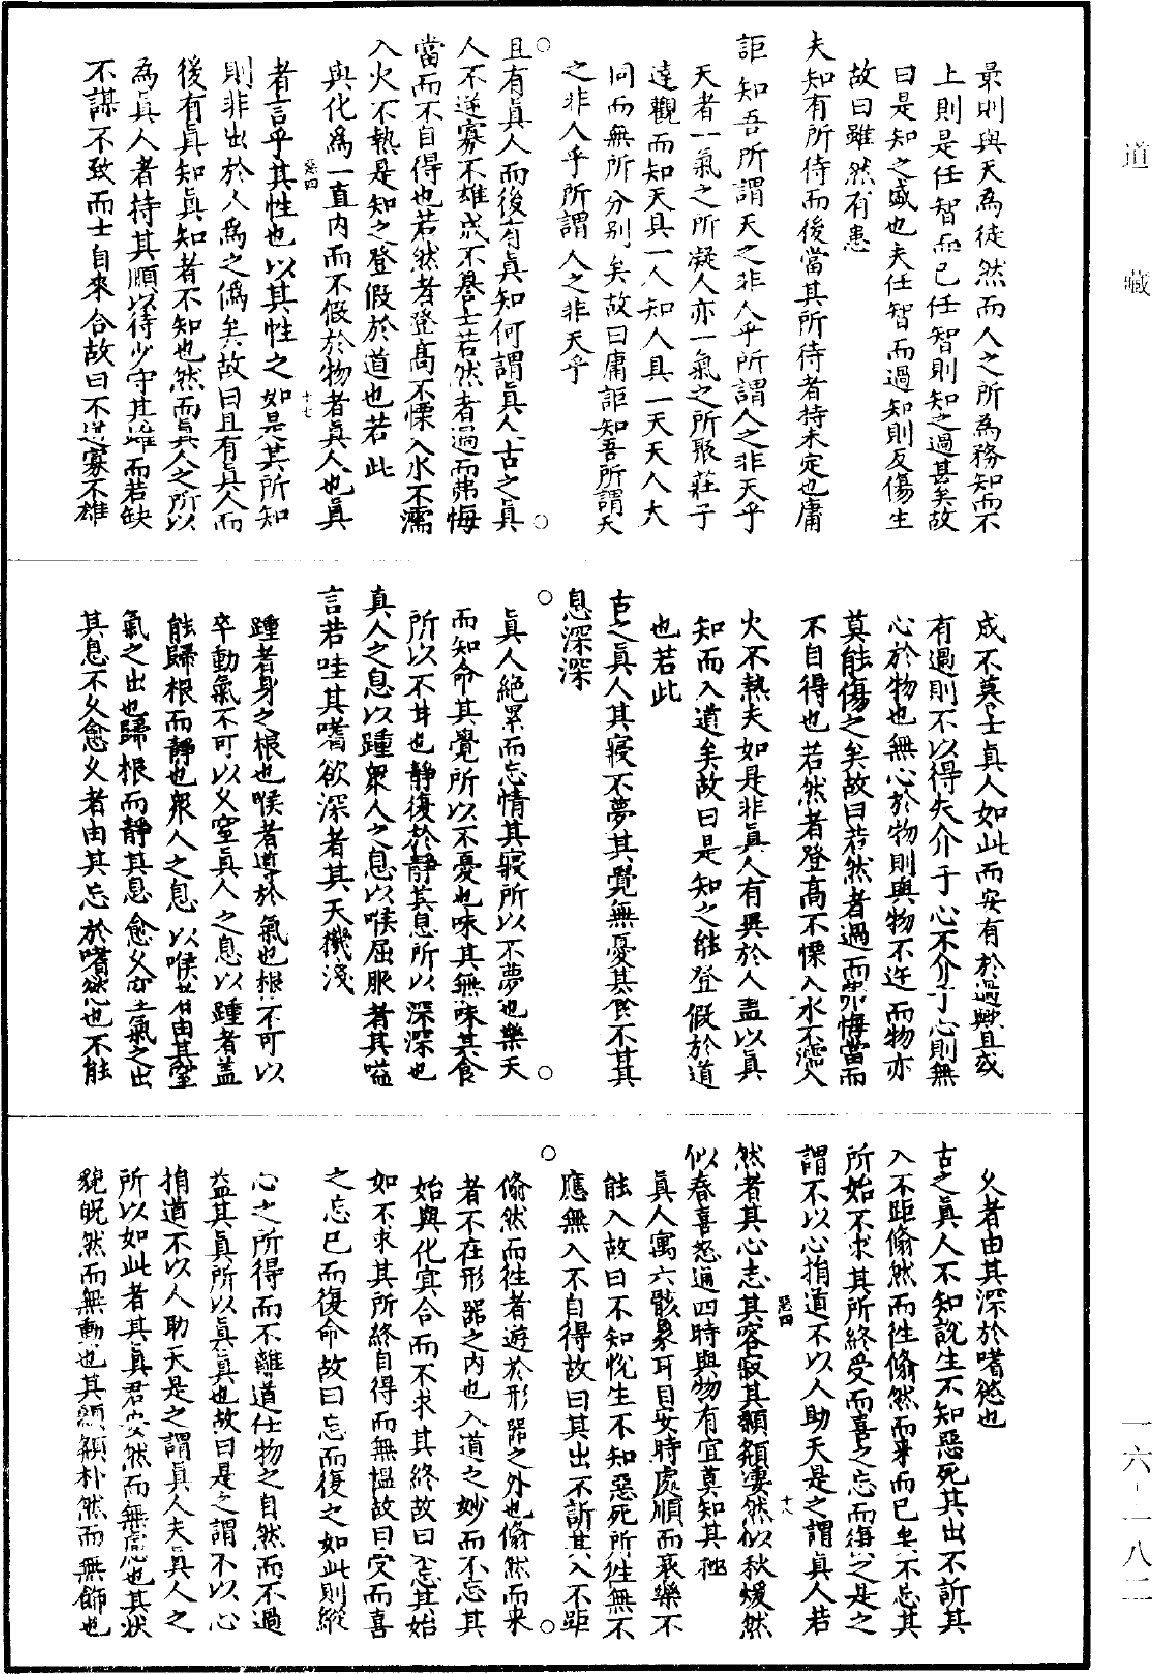 最則與天為徒然而人之所為務知而不
上則是任智而已任智則知之過甚矣故
曰是知之盛也夫任智而過知則反傷生
故曰雖然有患
夫知有所待而後當其所待者特未定也庸
詎知吾所謂天之非人乎所謂人之非天乎
天者一氣之所凝人亦一氣之所聚莊子
達觀而知天具一人知人具一天天人大
同而無所分別矣故曰庸詎知吾所謂天
之非人乎所謂人之非天乎
且有真人而後有真知何謂真人古之真
人不逆寡不雄成不謩士若然者過而弗悔
當而不自得也若然者登高不慄入水不濡
入火不熱是知之登假於道也若此
與化為一直內而不假於物者真人也真
者言乎其性也以其性之如是其所知
則非出於人為之偽矣故曰且有真人而
後有真知真知者不知也然而真人之所以
為真人者持其順以待少守其雌而若缺
不謀不致而士自來合故曰不逆寡不雄
成不謩士真人如此而安有於過歟且或
有過則不以得失介于心不介于心則無
心於物也無心於物則與物不迕而物亦
莫能傷之矣故曰若然者過而弗悔當而
不自得也若然者登高不慄入水不濡入
火不熱夫如是非真人有異於人盡以真
知而入道矣故曰是知之能登假於道
也若此
古之真人其寢不夢其覺無憂其食不甘其
息深深
真人絕累而忘情其寢所以不夢也樂天
而知命其覺所以不憂也味其無味其食
所以不甘也靜復於靜其息所以深深也
真人之息以踵眾人之息以喉屈服者其嗌
言若哇其嗜欲深者其天機淺
踵者身之根也喉者導於氣也根不可以
卒動氣不可以久窒真人之息以踵者蓋
能歸根而靜也眾人之息以喉者由其窒
氣之出也歸根而靜其息愈久窒氣之出
其息不久愈久者由其忘於嗜慾也不能
久者由其深於嗜慾也
古之真人不知說生不知惡死其出不訢其
入不距翛然而往翛然而來而已矣不忘其
所始不求其所終受而喜之忘而復之是之
謂不以心捐道不以人助天是之謂真人若
然者其心志其容寂其顙頯淒然似秋煖然
似春喜怒通四時與物有宜莫知其極
真人寓六骸象耳目安時處順而哀樂不
能入故曰不知悅生不知惡死所往無不
應無入不自得故曰其出不訢其入不距
翛然而往者遊於形器之外也翛然而來
者不在形器之內也入道之妙而不忘其
始與化冥合而不求其終故曰不忘其始
如不求其所終自得而無慍故曰受而喜
之忘已而復命故曰忘而復之如此則縱
心之所得而不離道任物之自然而不過
益其真所以真真也故曰是之謂不以心
捐道不以人助天是之謂真人夫真人之
所以如此者其真君安然而無慮也其狀
貌皃然而無動也其顙頯朴然而無飾也
惡四
十七
惡四
十八
道藏
一六-一八二